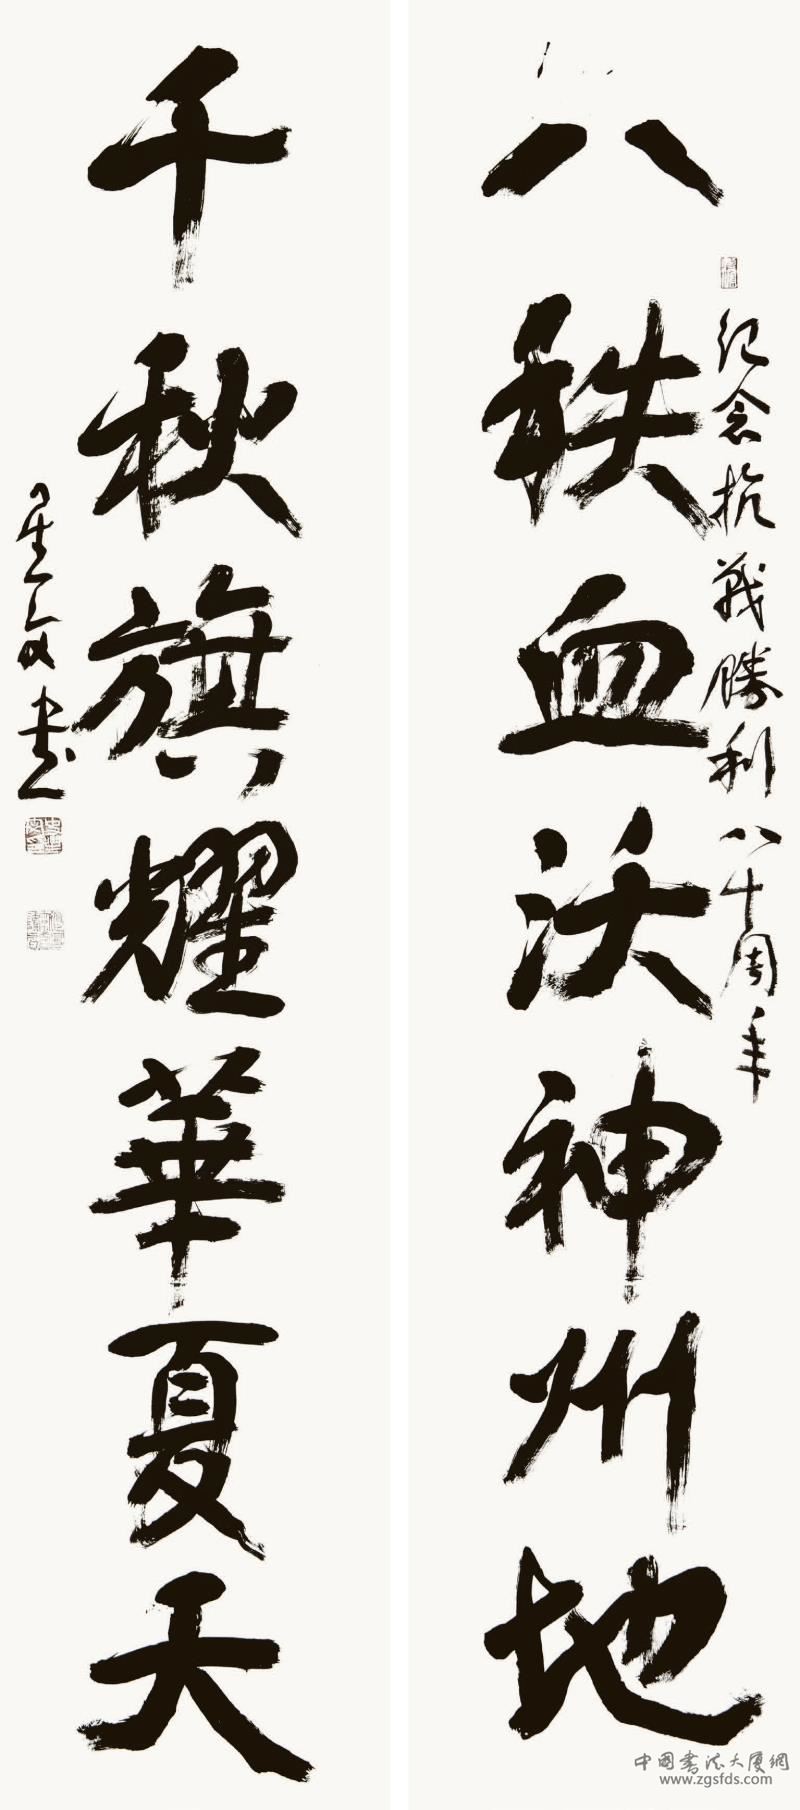 八秩血沃神州地
紀念抗戰勝利八十周年
千秋旗耀華夏天
星文書
中国書法大厦網
www.zgsfds.com